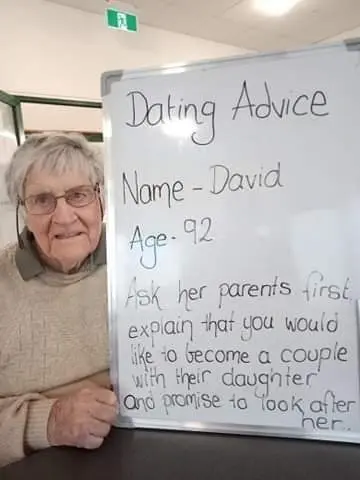 Dating Advice
Name - David
Age - 92
Ask her parents first,
explain that you would
like to become a couple
with their daughter
and promise to look after
her.